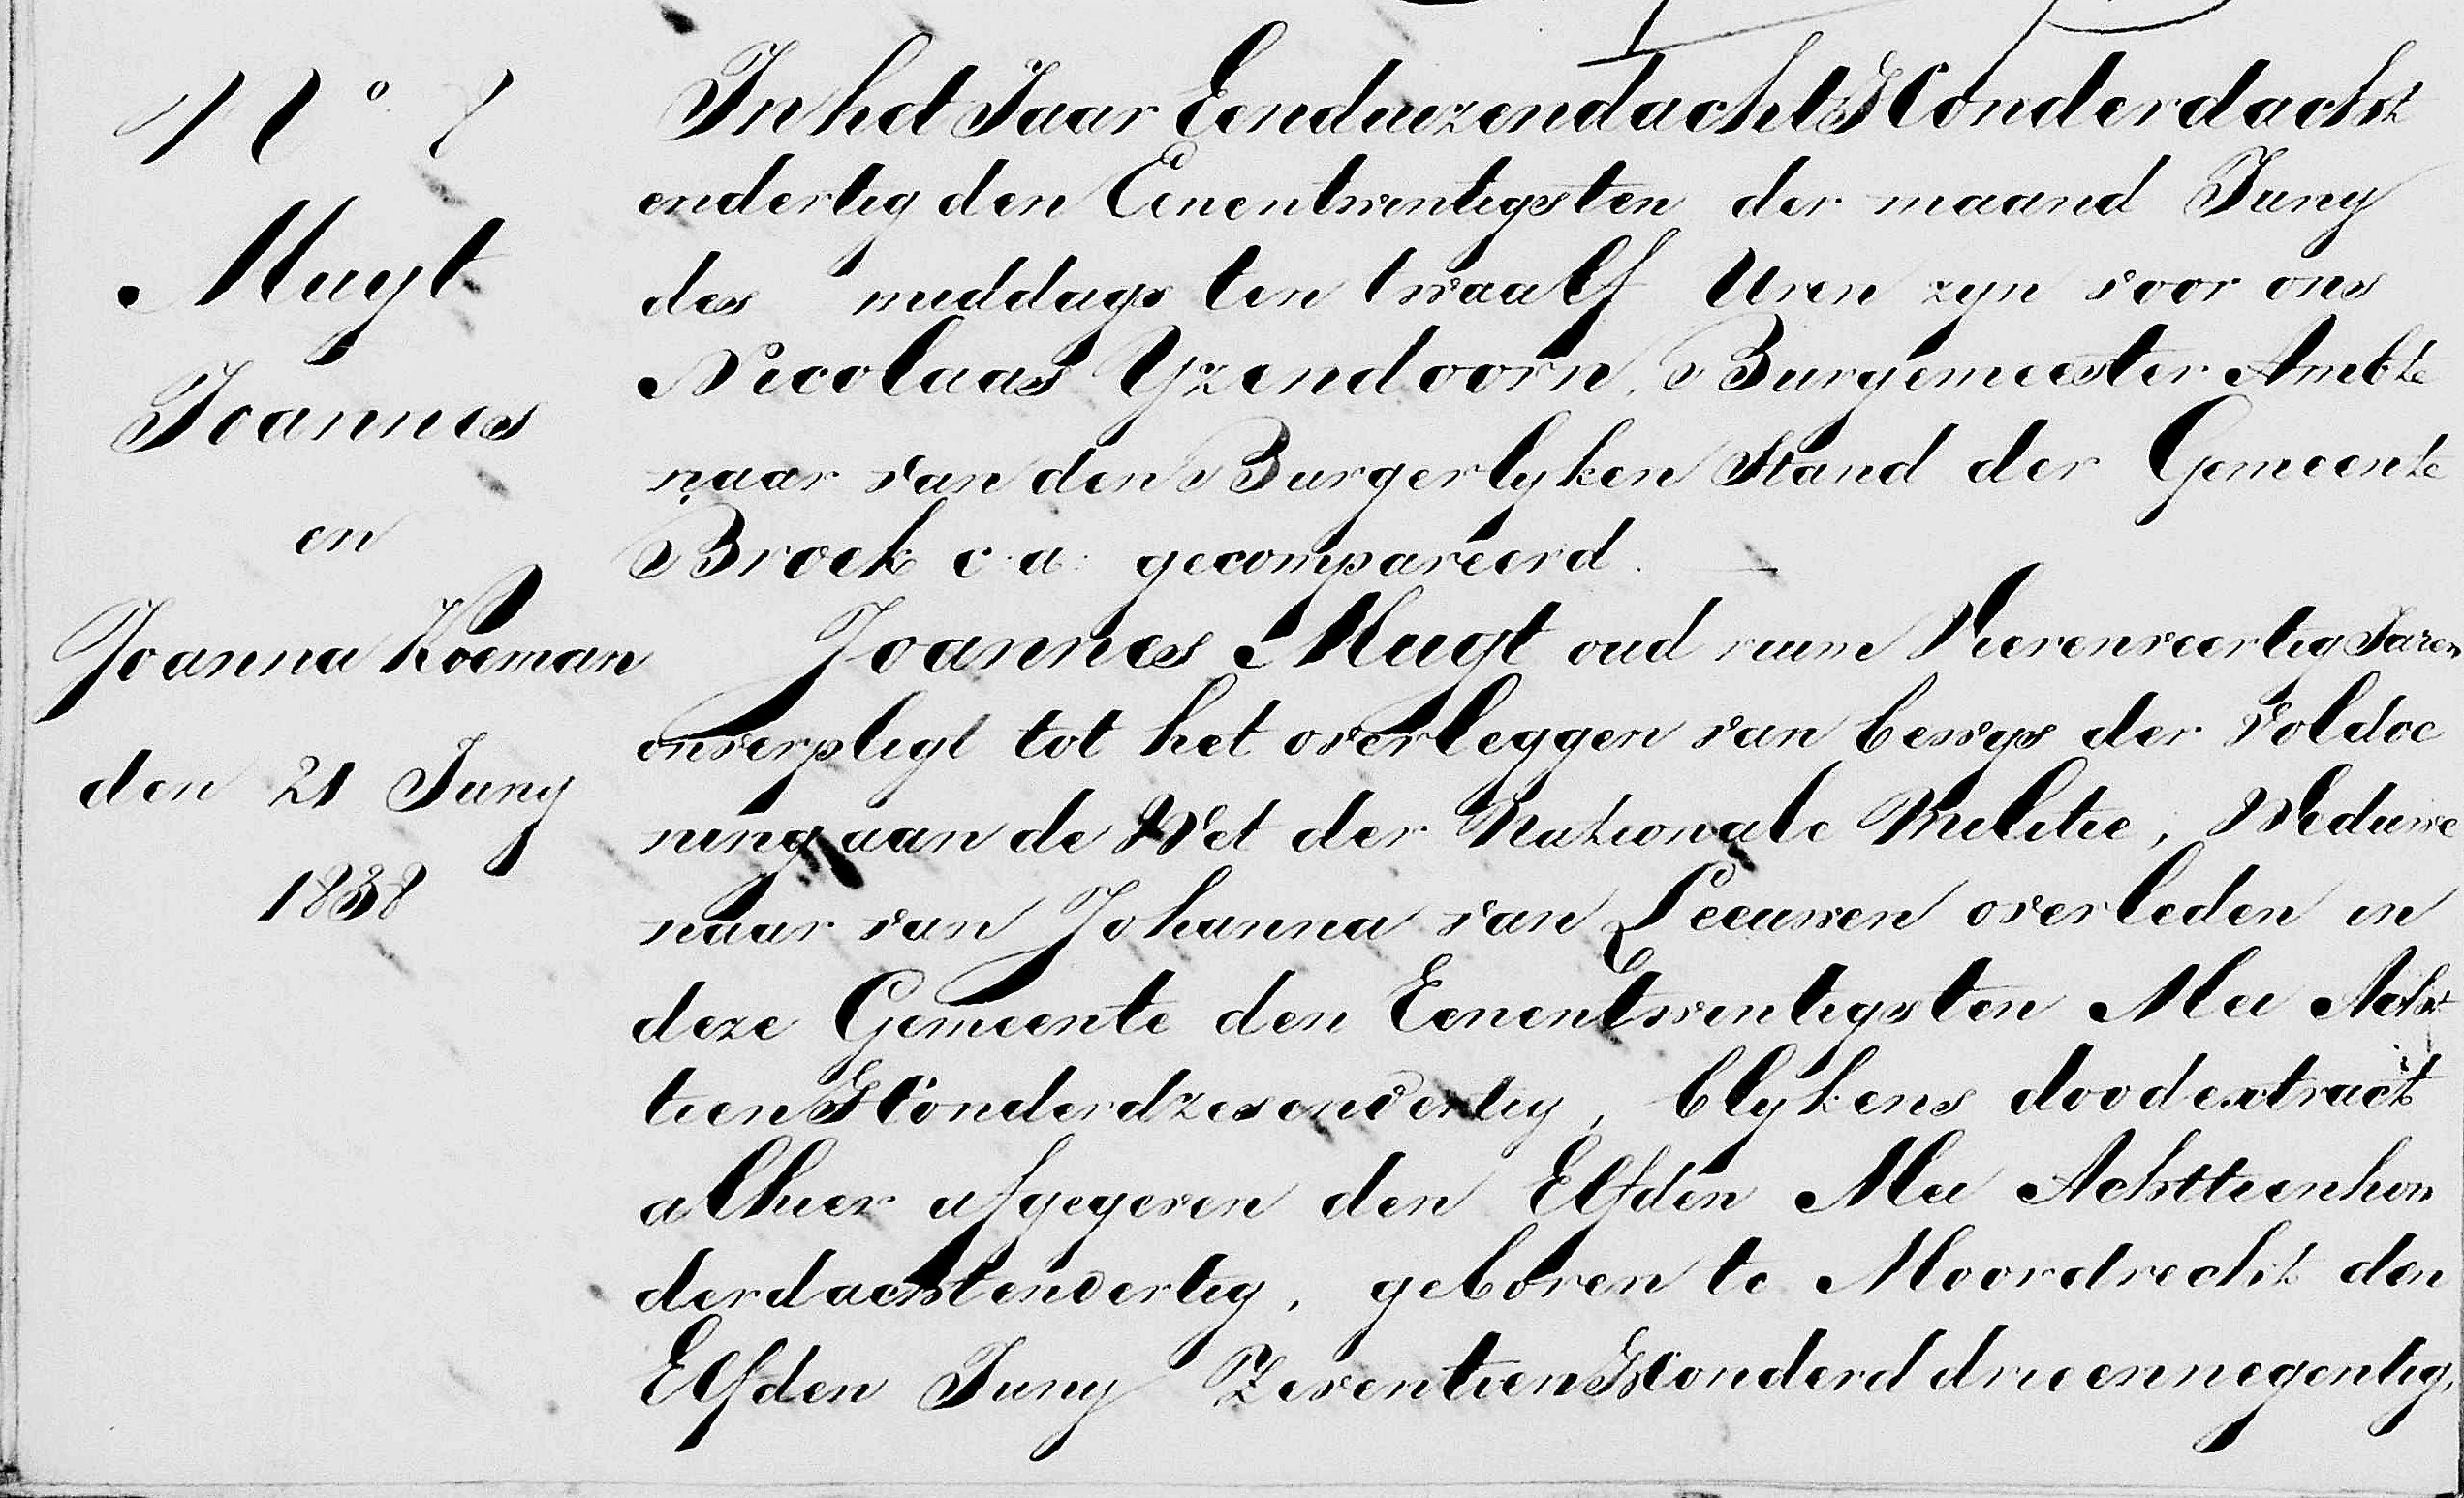 N° 7
Muyt
Joannes
en
Joanna Koeman
den 21 Juny
1838
In het Jaar EenduizendachtHonderdacht
endertig den Eenentwintigsten der maand Juny
des middags ten twaalf Uren zyn voor ons
Nicolaas Yzendoorn, Burgemeester Ambte
naar van den Burgerlyken Stand der Gemeente
Broek c.a. gecompareerd.
Joannes Muyt oud ruim Vierenveertig Jaren
onverpligt tot het overleggen van bewys der voldoe
ning aan de Wet der Nationale Militie, Weduwe
naar van Johanna van Leeuwen overleden in
deze Gemeente den Eenentwintigsten Mei Acht
tienHonderdzesendertig, blykens doodextract
alhier afgegeven den Elfden Mei Achttienhon
derdachtendertig, geboren te Moordrecht den
Elfden Juny ZeventienHonderd drieennegentig,